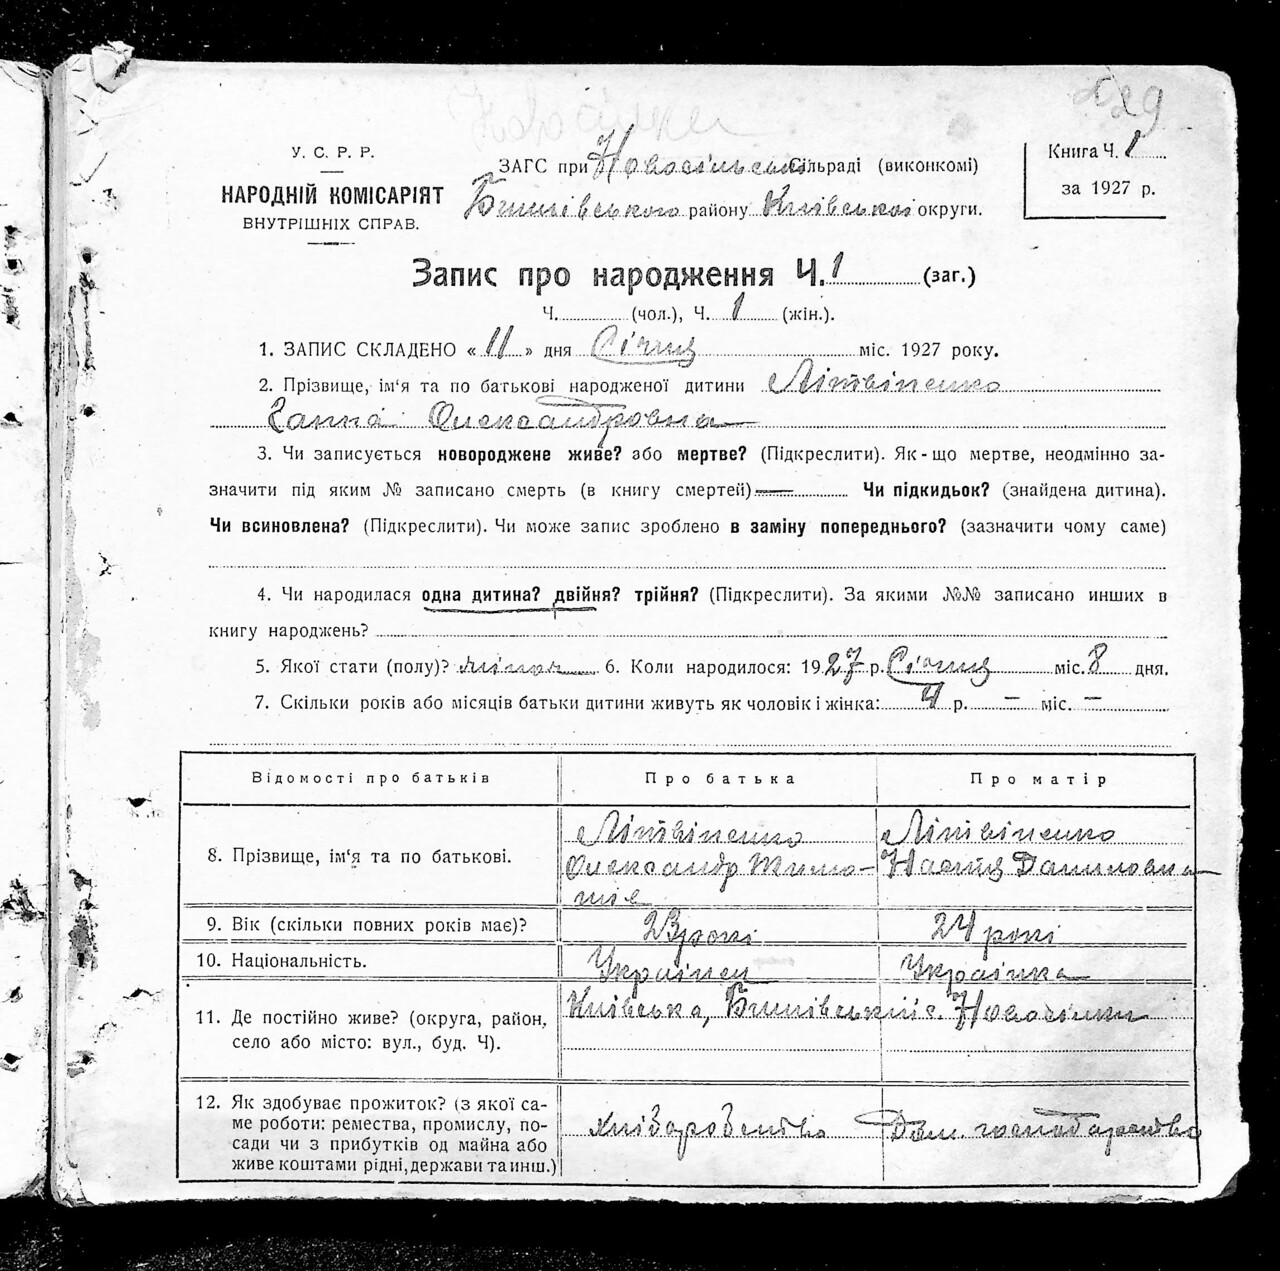 Новосілки
29
У. С. Р. Р.
НАРОДНІЙ КОМІСАРІЯТ
ВНУТРІШНІХ СПРАВ.
ЗАГС при Новосільській Сільраді (виконкомі)
Бишівського району Київської округи.
Книга Ч. 1
за 1927 р.
Запис про народження Ч. 1 (заг.)
Ч. (чол.), Ч. 1 (жін.).
1. ЗАПИС СКЛАДЕНО « 11 » дня Січня міс. 1927 року.
2. Прізвище, ім'я та по батькові народженої дитини Літвіненко
Ганна Олександровна
3. Чи записується новороджене живе? або мертве? (Підкреслити). Як-що мертве, неодмінно за-
значити під яким № записано смерть (в книгу смертей) — Чи підкидьок? (знайдена дитина).
Чи всиновлена? (Підкреслити). Чи може запис зроблено в заміну попереднього? (зазначити чому саме)
4. Чи народилася одна дитина? двійня? трійня? (Підкреслити). За якими №№ записано инших в
книгу народжень?
5. Якої стати (полу)? жіноч 6. Коли народилося: 1927 р. Січня міс. 8 дня.
7. Скільки років або місяців батьки дитини живуть як чоловік і жінка: 4 р. — міс. —
Відомості про батьків Про батька Про матір
8. Прізвище, ім'я та по батькові. Літвіненко Літвіненко
Олександр Тимо- Настя Даниловна
9. Вік (скільки повних років має)? 23 рокі 24 рокі
10. Національність. Українец Українка
11. Де постійно живе? (округа, район, село або місто: вул., буд. Ч). Київська, Бишівський с. Новосілки
12. Як здобуває прожиток? (з якої са-
ме роботи: ремества, промислу, по-
сади чи з прибутків од майна або
живе коштами рідні, держави та инш.) хліборобство Дом. господарство